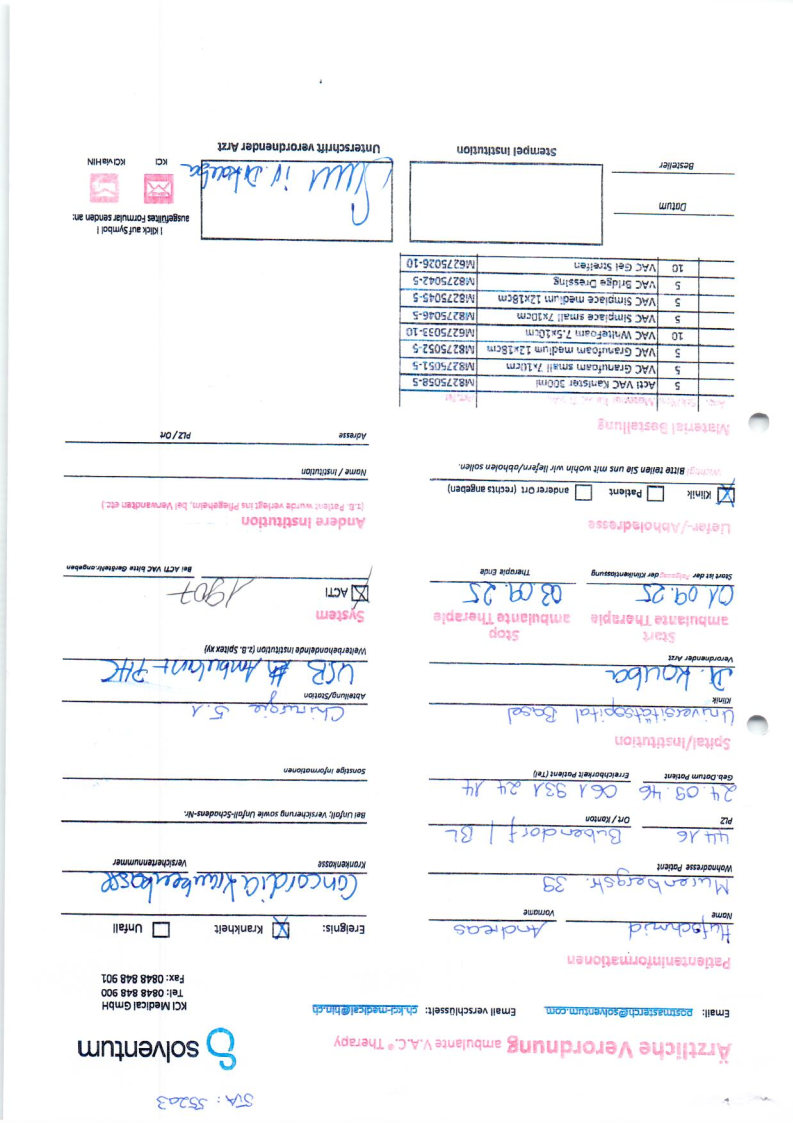 STA: 55203
Ärztliche Verordnung ambulante V.A.C.® Therapy
solventum
Email: postmasterch@solventum.com Email verschlüsselt: ch.kci-medical@hin.ch
KCI Medical GmbH
Tel: 0848 848 900
Fax: 0848 848 901
Patienteninformationen
Hufschmid Andreas
Name Vorname
Murenbergstr. 39
Wohnadresse Patient
4416 Bubendorf / BL
PLZ Ort / Kanton
24.09.46 061 931 24 14
Geb. Datum Patient Erreichbarkeit Patient (Tel)
Ereignis: Krankheit Unfall
Concordia Krankenkasse
Krankenkasse Versichertennummer
Bei Unfall: Versicherung sowie Unfall-Schadens-Nr.
Sonstige Informationen
Spital/Institution
Universitätsspital Basel
Klinik
Dr. Kouba
Verordnender Arzt
Chirurgie 5.1
Abteilung/Station
USB Ambulant
Weiterbehandelnde Institution (z.B. Spitex xy)
Start
ambulante Therapie
01.09.25
Start ist der Folgetag der Klinikentlassung
Stop
ambulante Therapie
03.09.25
Therapie Ende
System
ACTI 1907
Bei ACTI VAC bitte GeräteNr. angeben
Liefer-/Abholadresse
Klinik Patient anderer Ort (rechts angeben)
Wichtig! Bitte teilen Sie uns mit wohin wir liefern/abholen sollen.
Andere Institution
(z.B. Patient wurde verlegt ins Pflegeheim, bei Verwandten etc.)
Name / Institution
Adresse PLZ / Ort
Material Bestellung
5 Acti VAC Kanister 300ml M8275058-5
5 VAC Granufoam small 7x10cm M8275051-5
5 VAC Granufoam medium 12x18cm M8275052-5
10 VAC WhiteFoam 7.5x10cm M6275033-10
5 VAC Simplace small 7x10cm M8275046-5
5 VAC Simplace medium 12x18cm M8275045-5
5 VAC Bridge Dressing M8275042-5
10 VAC Gel Streifen M6275026-10
Datum
Besteller
Stempel Institution
Unterschrift verordnender Arzt
! Klick auf Symbol !
ausgefülltes Formular senden an:
KCI KCI via HIN